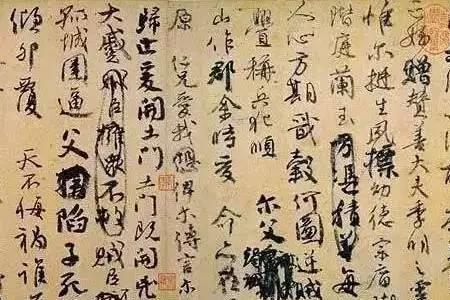 亡姪贈贊善大夫季明之靈
惟爾挺生夙標幼德宗廟
階庭蘭玉方憑積善每
人心方期戩穀何圖逆賊
釁稱兵犯順 爾父
山作郡余時受 命亦在
原 仁兄愛我俾爾傳言爾
歸止爰開土門土門既開凶
大蹙賊臣擁眾不救賊臣
孤城圍逼父陷子死
傾卵覆 天不悔禍誰